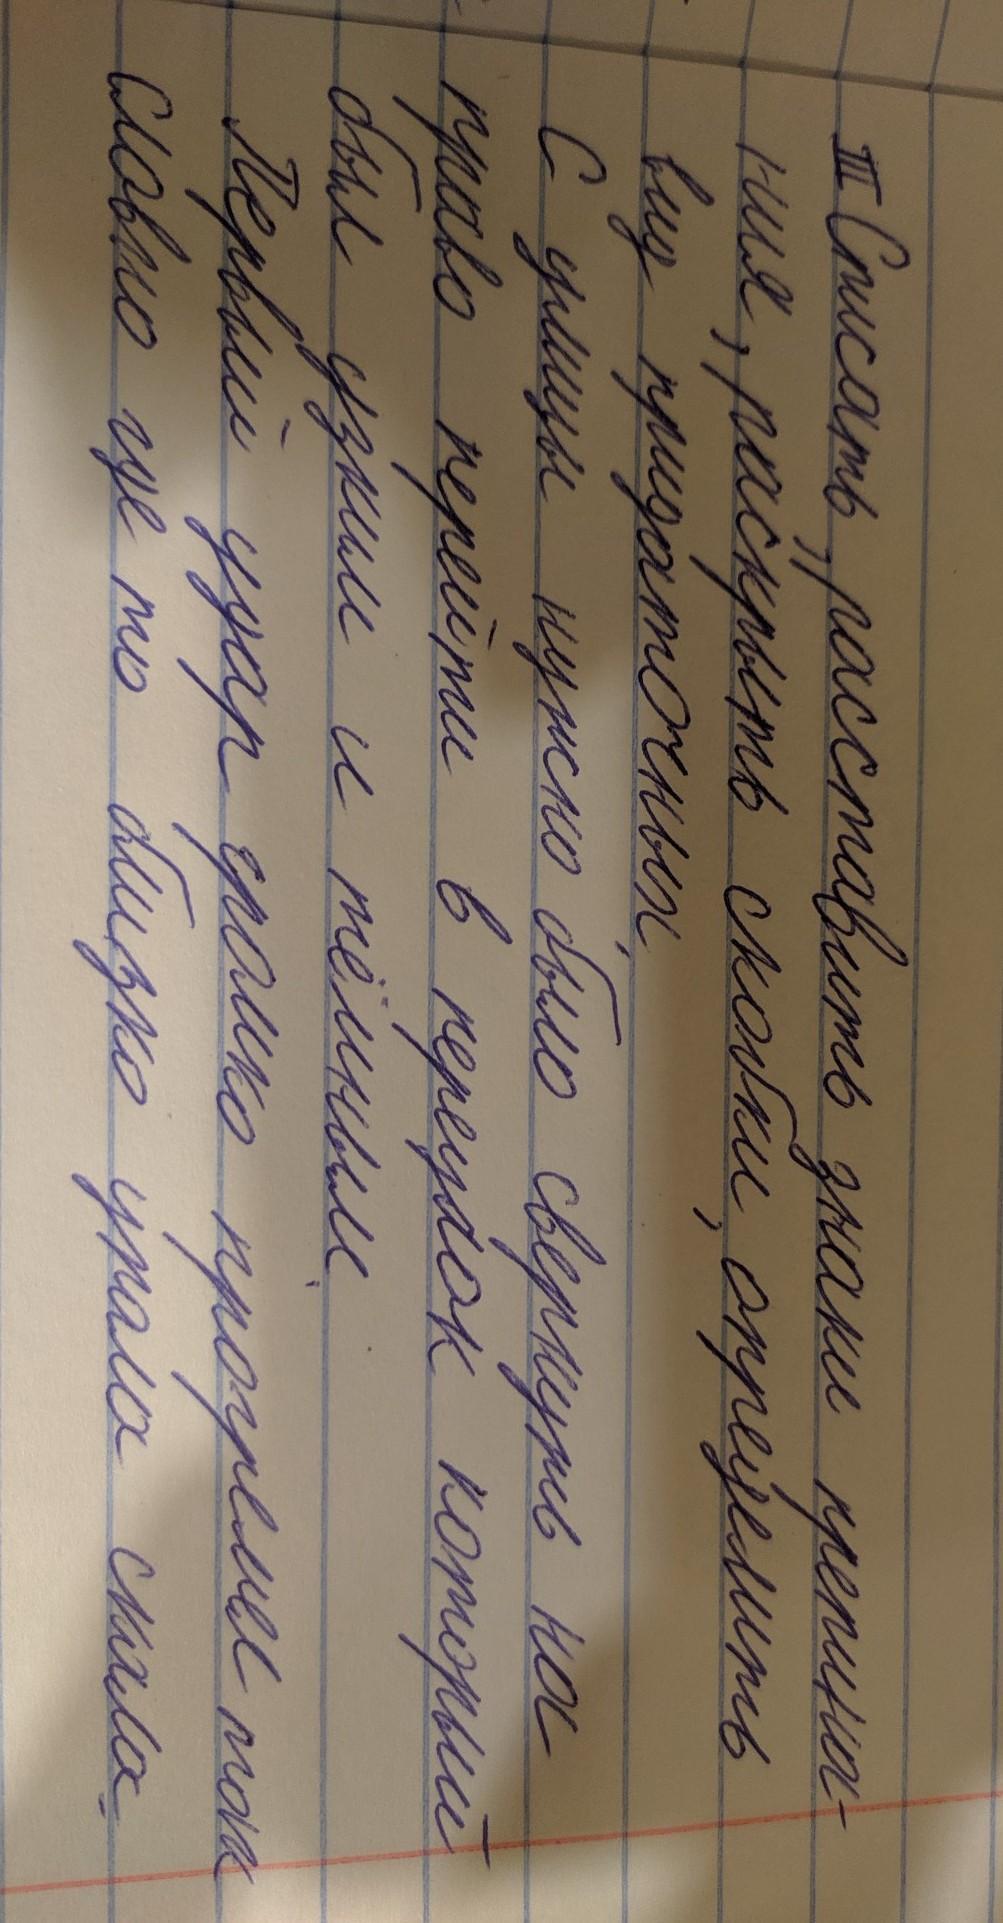 III Списать, расставить знаки препина-
ния, раскрыть скобки, определить
вид придаточных
С улицы нужно было свернуть на
право перейти в переулок который
был узким и тёмным.
Первый удар грома прогремел так
словно где то близко упала скала.